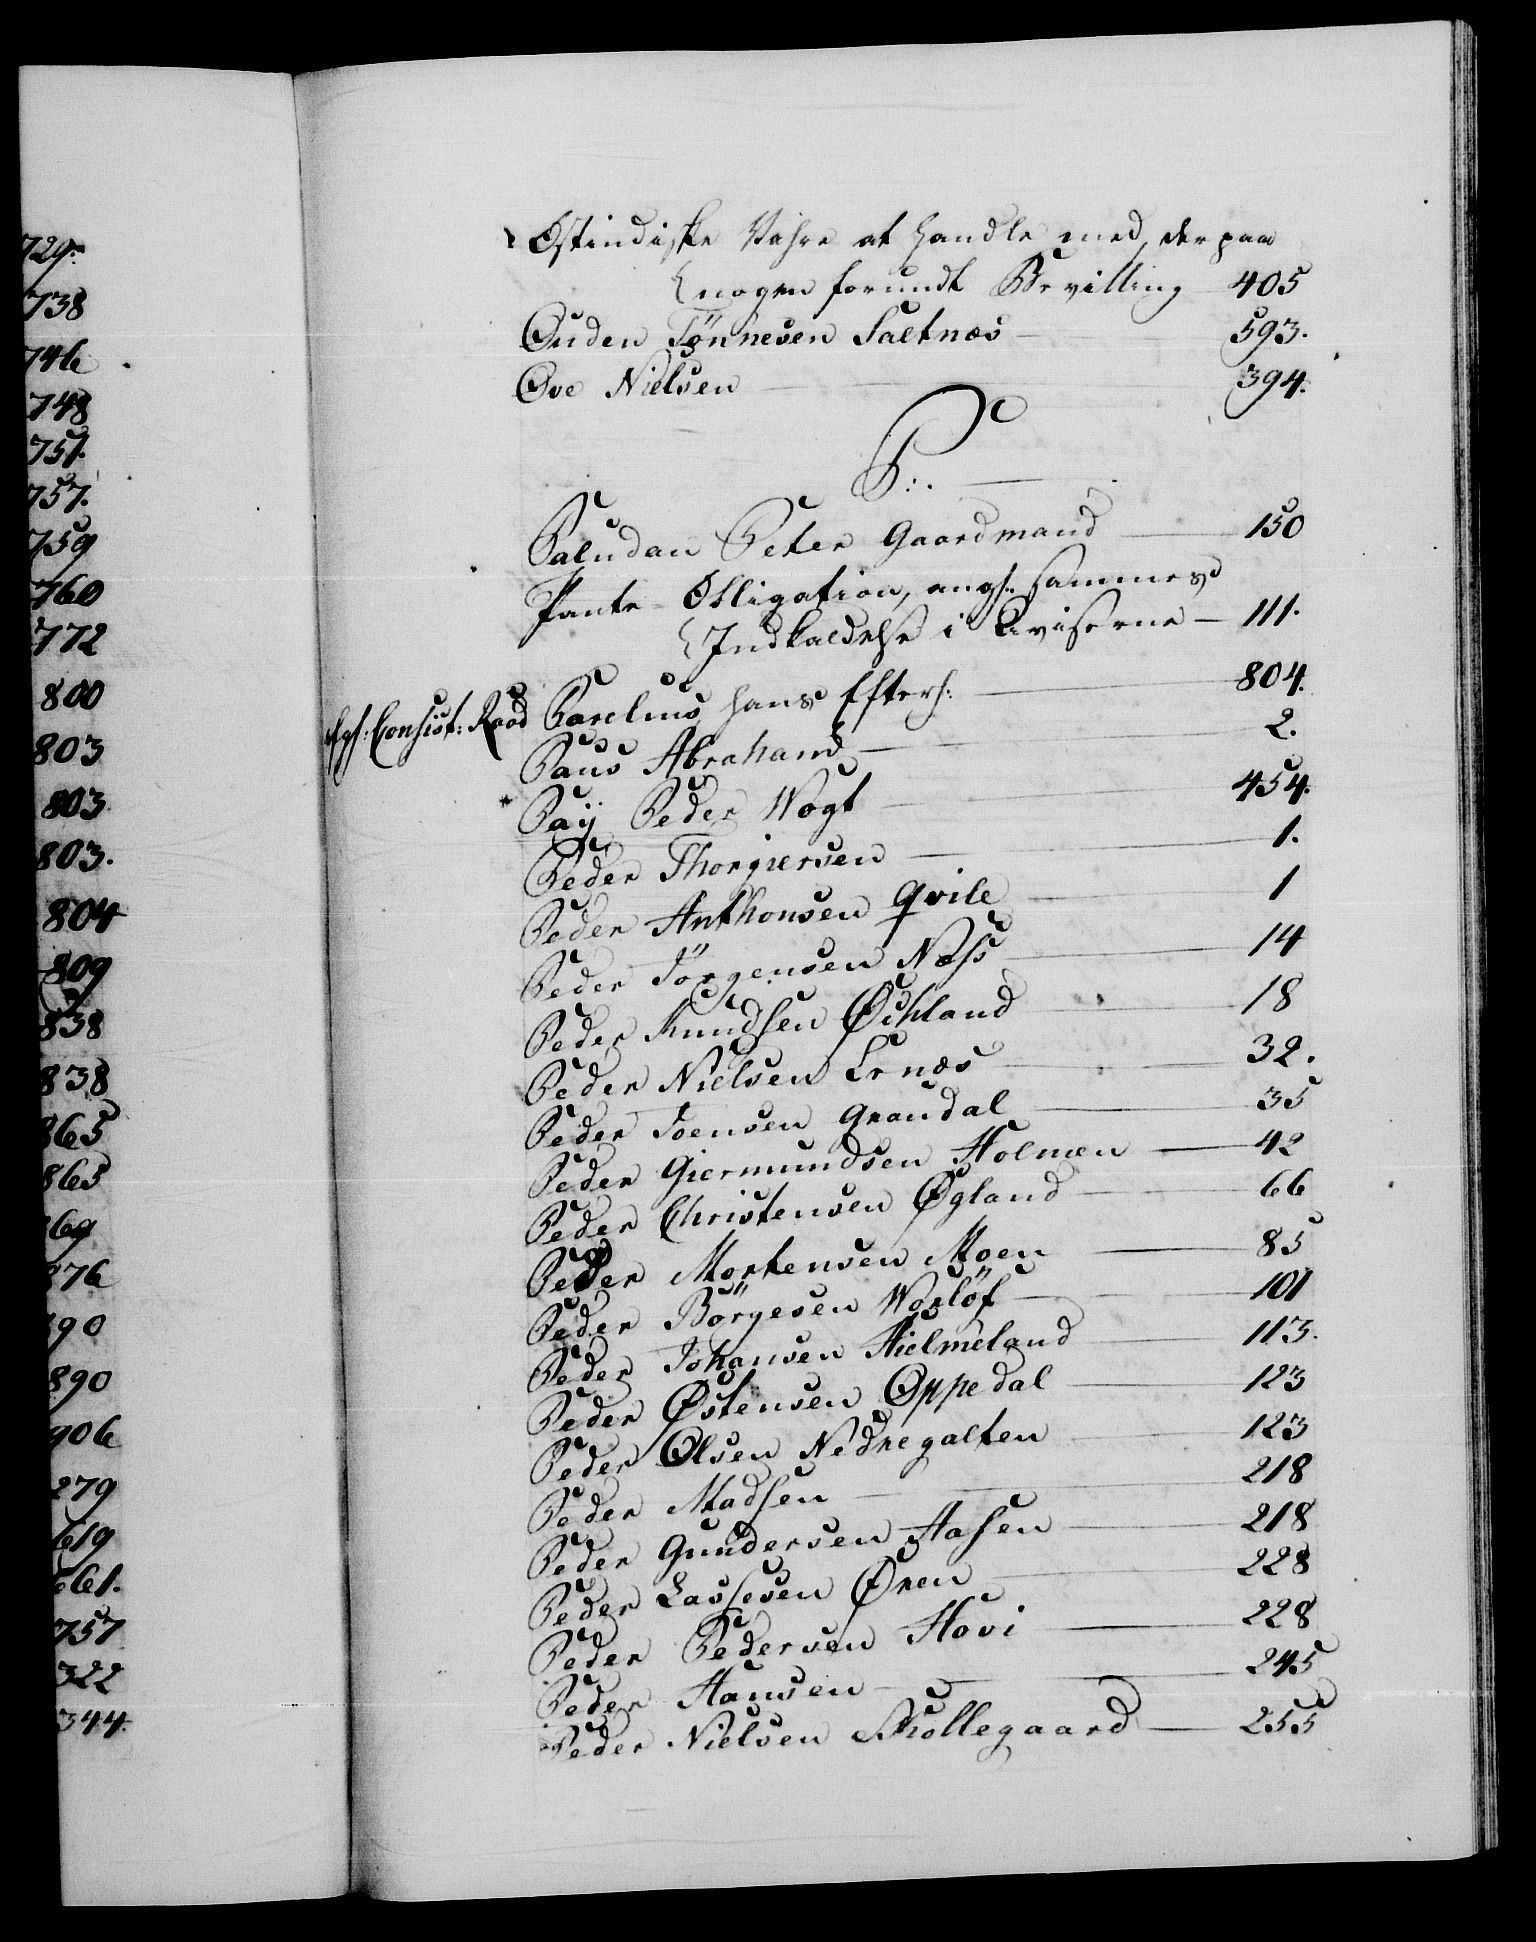 729.
738
746
748
751.
757.
759
760
772
800
803
803
803.
804
809
838
838
865
865
869
876
890
890
906
279
619
661.
757
322
344.
Østindiske Vahre at handle med, derpaa
nogen forundt Bevilling 405
Ouden Tönnesen Saltnæs 593.
Ove Nielsen 394.
P:.
Paludan Peter Gaardmand 150
Pante-Obligation, angl: sammes
Indkaldelse i Aviserne 111.
Consist: Raad Parelius hans Efterl: 804.
Paus Abraham 2.
Paÿ Peder Vogt 454.
Peder Thorgiersen 1.
Peder Anthonsen Qvile 1
Peder Jörgensen Næss 14
Peder Knudsen Øchland 18
Peder Nielsen Ernæs 32.
Peder Joensen Grøndal 35
Peder Giermundsen Holmen 42
Peder Christensen Øgland 66
Peder Mortensen Moen 85
Peder Börgesen Worlöf 101
Peder Johansen Hielmeland 113.
Peder Østensen Oppedal 123
Peder Olsen Nedregalten 123
Peder Madsen 218
Peder Gundersen Aasen 218
Peder Lassesen Øren 228
Peder Pedersen Hovi 228
Peder Hansen 245
Peder Nielsen Skollegaard 255